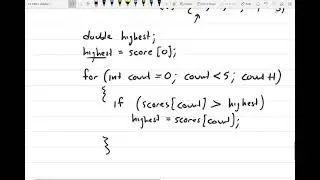 double highest;
highest = score[0];
for (int count = 0; count < 5; count++)
{
if (scores[count] > highest)
highest = scores[count];
}